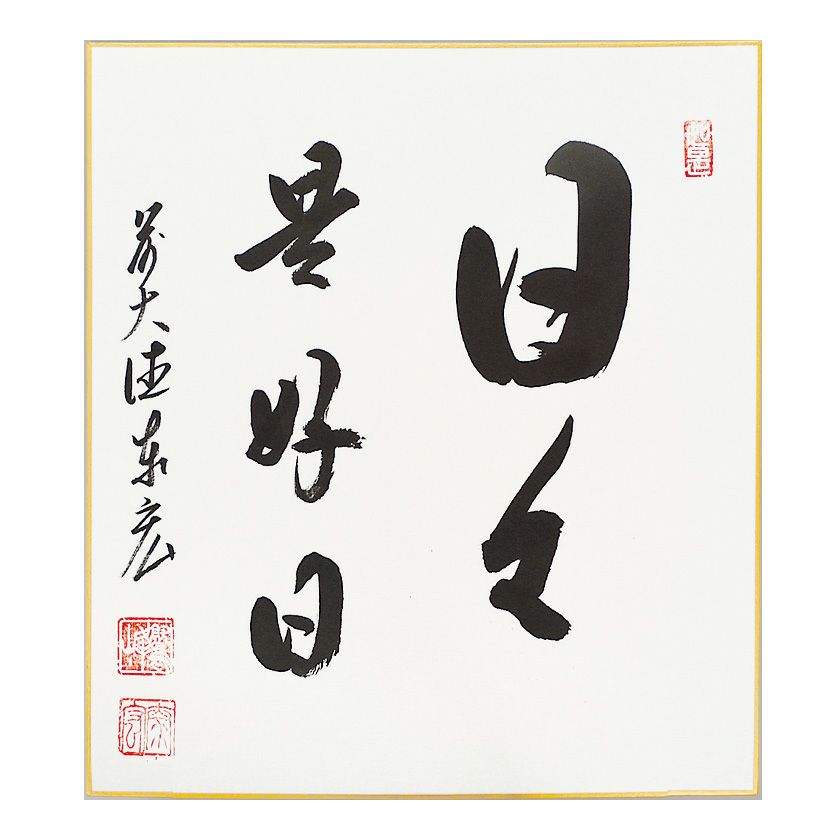 日々
是好日
前大徳東宏